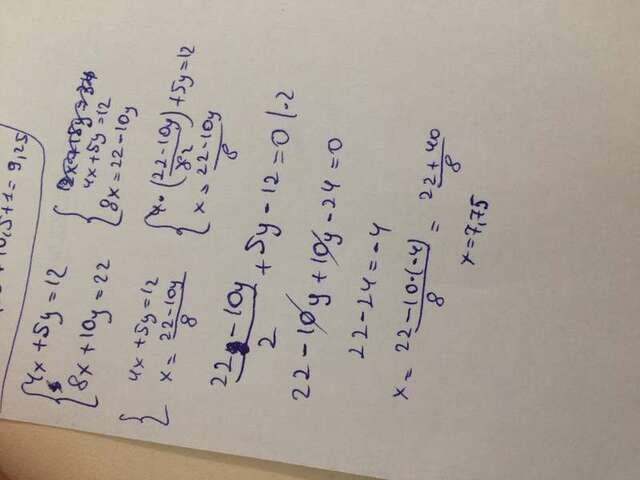 + 10,5+1 = 9,25
4x + 5y = 12
8x + 10y = 22
4x+5y=12
8x = 22-10y
4x+5y=12
x = 22-10y / 8
4 · (22-10y / 82) + 5y = 12
x = 22-10y / 8
22 - 10y / 2 + 5y - 12 = 0 | · 2
22 - 10y + 10y - 24 = 0
22 - 24 = -4
x = 22-10·(-4) / 8 = 22+40 / 8
x = 7,75